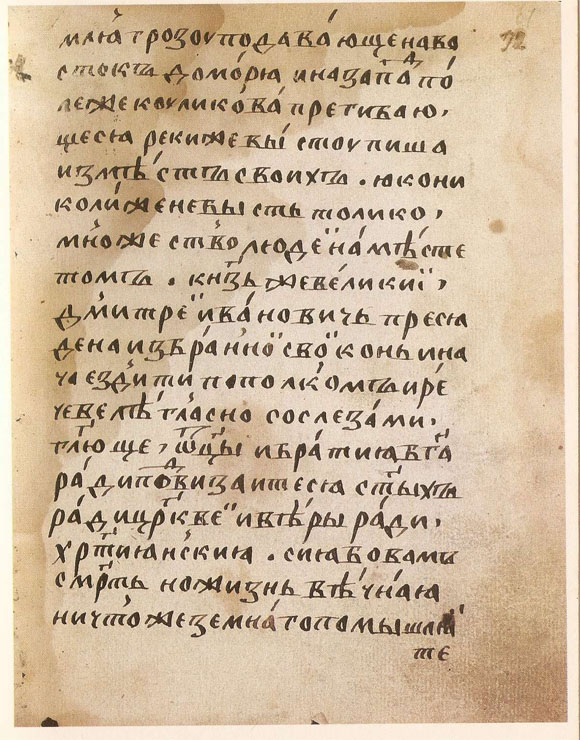 92
млѧ́ грозоу подава́юще на во
стокъ до мо́рѧ и на запаⷣ а по́
ле же коуликова́ прегибаю,
щесѧ реки же вы́стоупиша
из мѣстъ своихъ . ꙗко ни
коли́ же не бы́сть толико ,
мно́жество люде̏ на мѣсте
томъ . кнѧ҃зь же великиї ,
дми́тре̏ ива́нович пресѧ
де на избра́нно̏ сво̏ конь и на
ча е́здити по полкомъ и ре́
че велѣгла́сно со слеза́ми .
гл҃юще , ѿц҃ы и бра́тиꙗ бг҃а
ра́ди поⷣвизаитесѧ ст҃ыхъ
ра́ди цр҃кве̏ и вѣ́ры ра́ди .
хрⷭ҇тиꙗ́нскиꙗ . сиꙗ бо вамъ
сме́рть но жизнь вѣ́чнаꙗ
ничто́же земна́го помышлꙗ
те